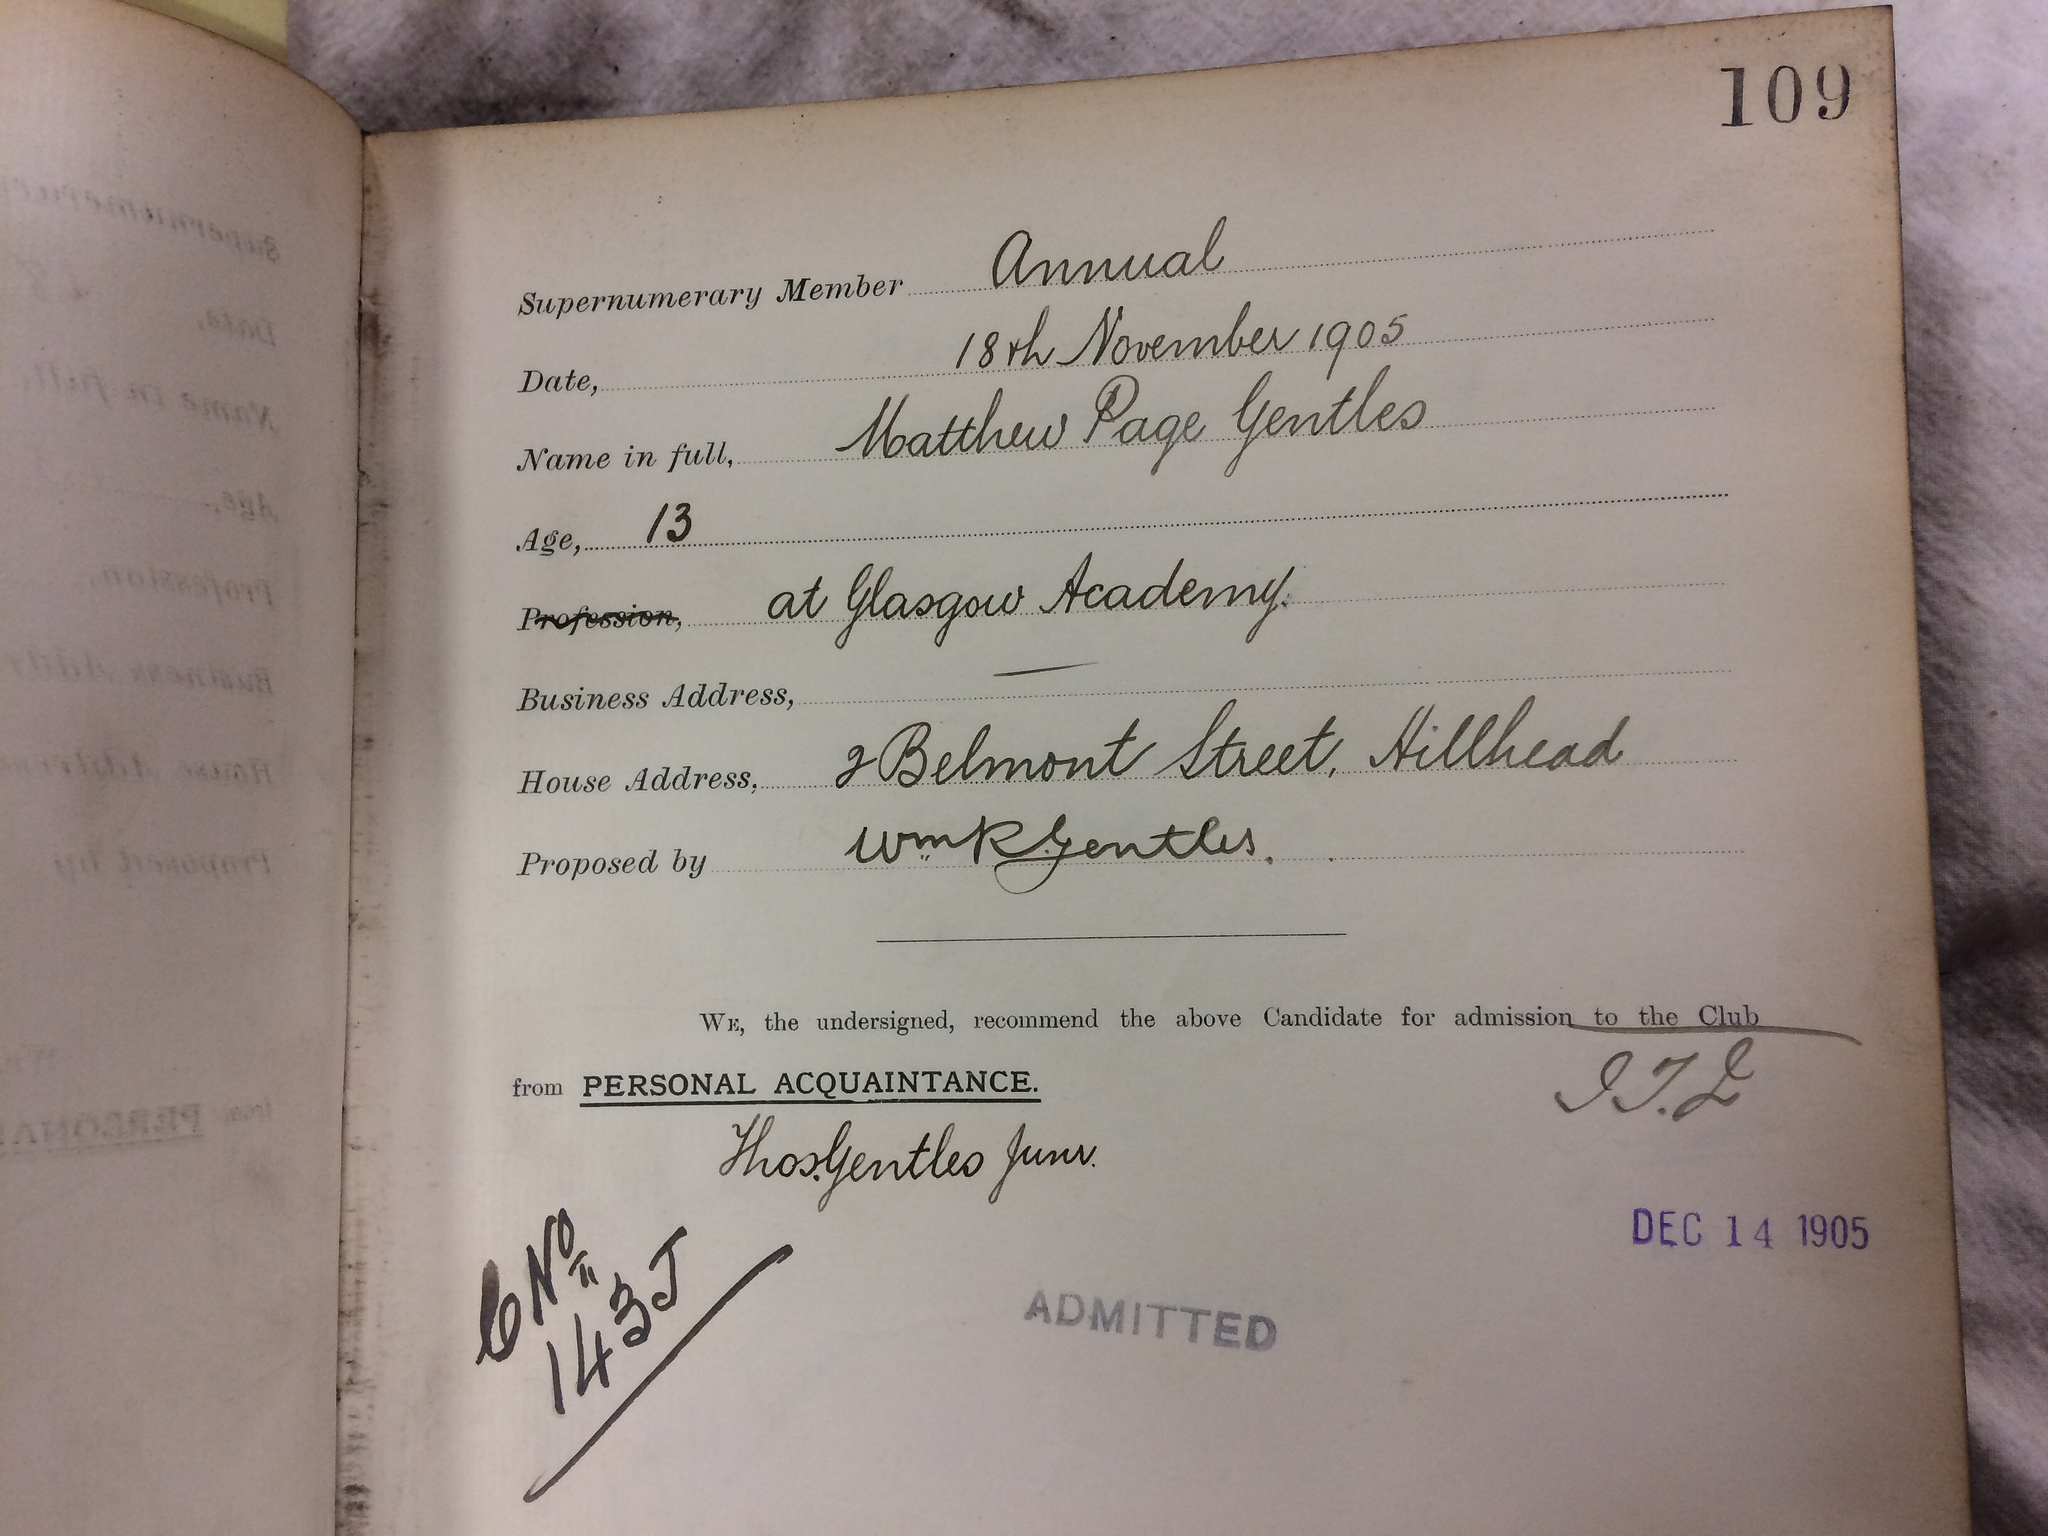 109
Supernumerary Member Annual
Date, 18th November 1905
Name in full, Matthew Page Gentles
Age, 13
Profession, at Glasgow Academy.
Business Address, —
House Address, 2 Belmont Street, Hillhead
Proposed by Wm R. Gentles.
WE, the undersigned, recommend the above Candidate for admission to the Club
from PERSONAL ACQUAINTANCE.
Thos. Gentles Junr.
DEC 14 1905
C No
143J
ADMITTED